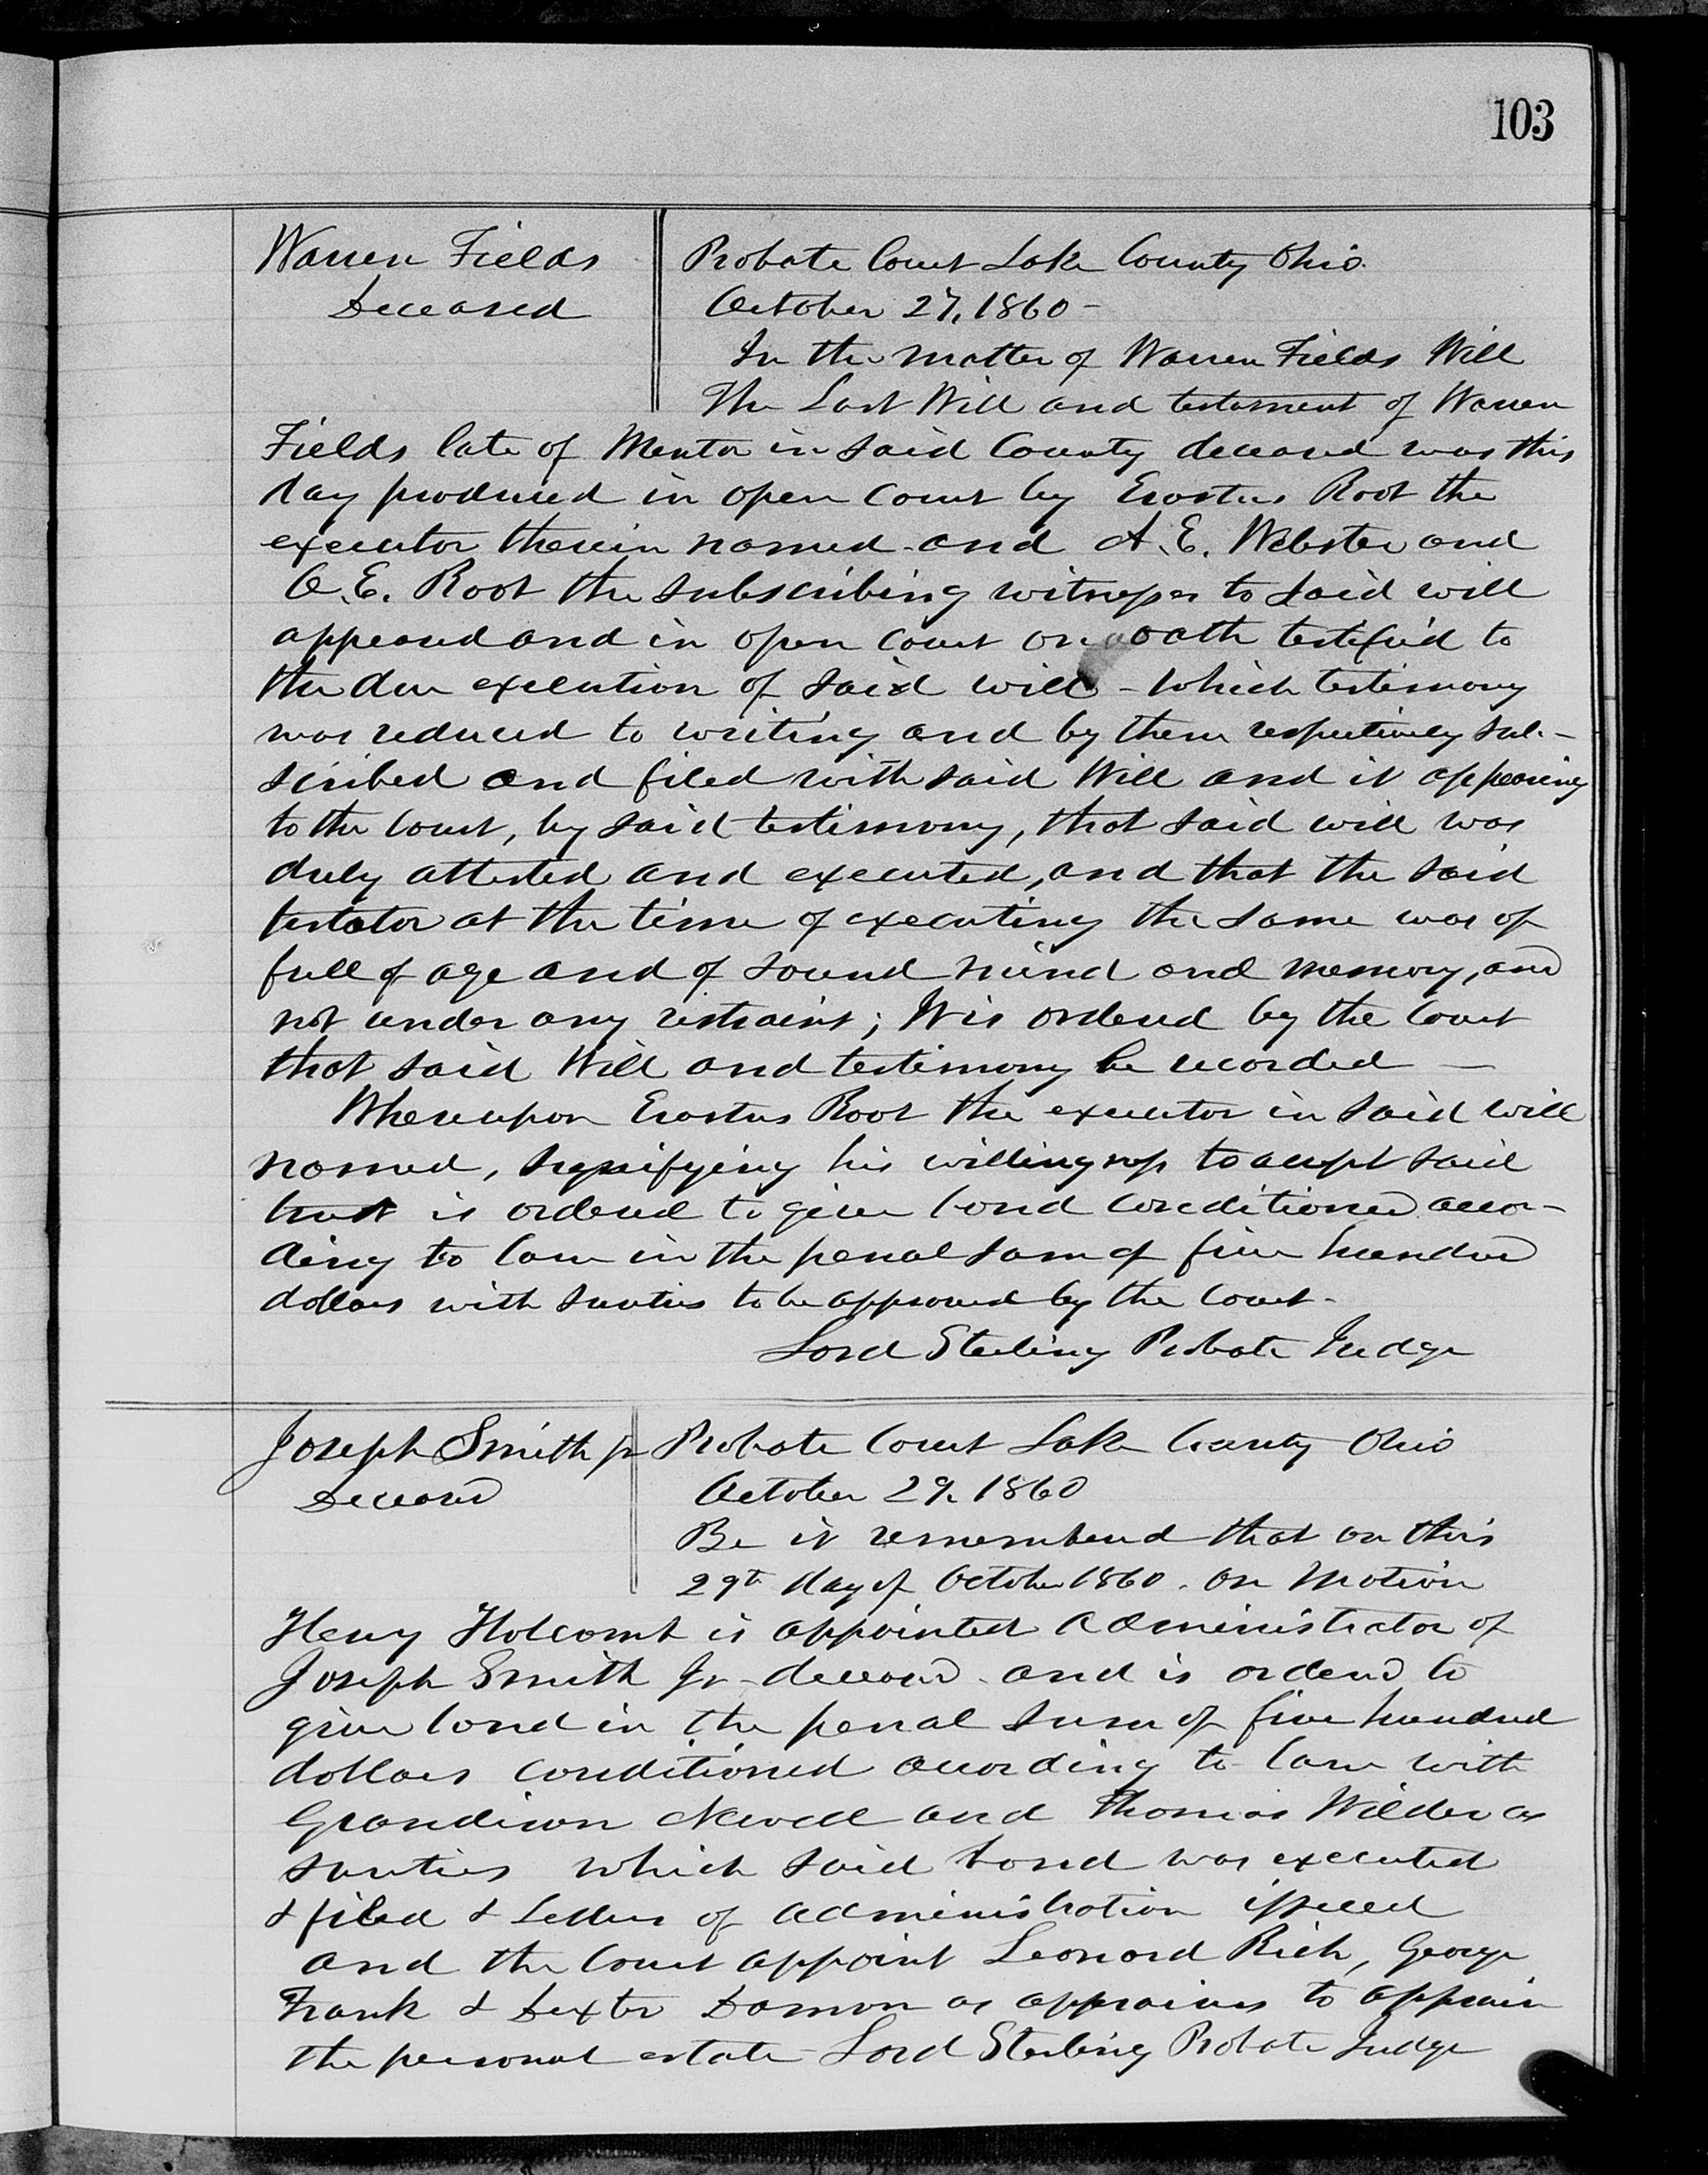 103
Warren Fields
Deceased
Probate Court Lake County Ohio.
October 27, 1860 -
In the matter of Warren Fields Will
The Last Will and testament of Warren
Fields late of Mentor in said County deceased was this
day produced in open Court by Erastus Root the
executor therein named and A. E. Webster and
O. E. Root the subscribing witnesses to said will
appeared and in open court on oath testified to
the due execution of said will - which testimony
was reduced to writing and by them respectively sub-
scribed and filed with said Will and it appearing
to the Court, by said testimony, that said will was
duly attested and executed, and that the said
testator at the time of executing the same was of
full of age and of sound mind and memory, and
not under any restraint; It is ordered by the Court
that said Will and testimony be recorded —
Whereupon Erastus Root the executor in said will
named, signifying his willingness to accept said
trust is ordered to give bond conditioned accor-
ding to law in the penal sum of five hundred
dollars with sureties to be approved by the Court -
Lord Sterling Probate Judge
Joseph Smith jr
Deceased
Probate Court Lake County Ohio
October 29. 1860
Be it remembered that on this
29th day of October 1860. on motion
Henry Holcomb is appointed administrator of
Joseph Smith Jr - deceased - and is ordered to
give bond in the penal sum of five hundred
dollars conditioned according to law with
Grandison Newell and Thomas Wilder as
sureties which said bond was executed
& filed & Letters of administration issued
and the Court appoint Leonard Rich, George
Frank & Dexter Damon as appraisers to appraise
the personal estate - Lord Sterling Probate Judge